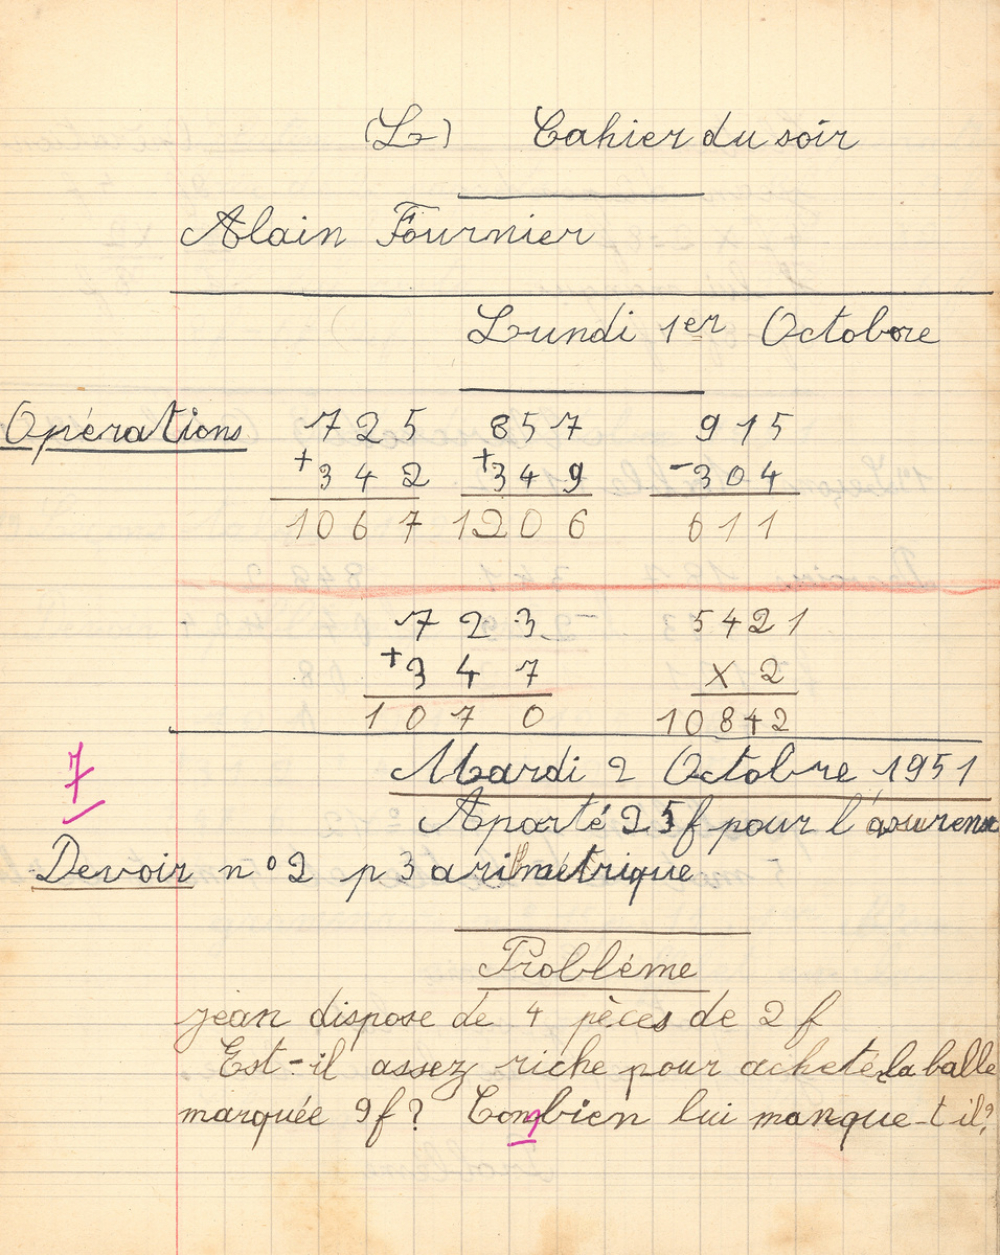 (L) Cahier du soir
Alain Fournier
Lundi 1er Octobre
Opérations 725 857 915
+342 +349 -304
1067 1206 611
723 5421
+347 x 2
1070 10842
7 Mardi 2 Octobre 1951
Aporté 25f pour l'
Devoir n° 2 p 3 arithmétrique
Problème
jean dispose de 4 pèces de 2 f
Est-il assez riche pour acheté la balle
marquée 9f? Combien lui manque-t il?